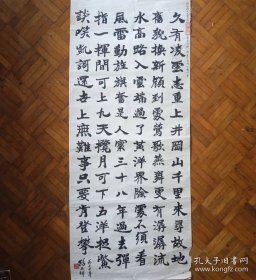 久有凌雲志重上井岡山千里來尋故地
舊貌換新顏到處鶯歌燕舞更有潺潺流
水高路入雲端過了黃洋界險處不須看
風雷動旌旗奮是人寰三十八年過去彈
指一揮間可上九天攬月可下五洋捉鱉
談笑凱歌還世上無難事只要肯登攀